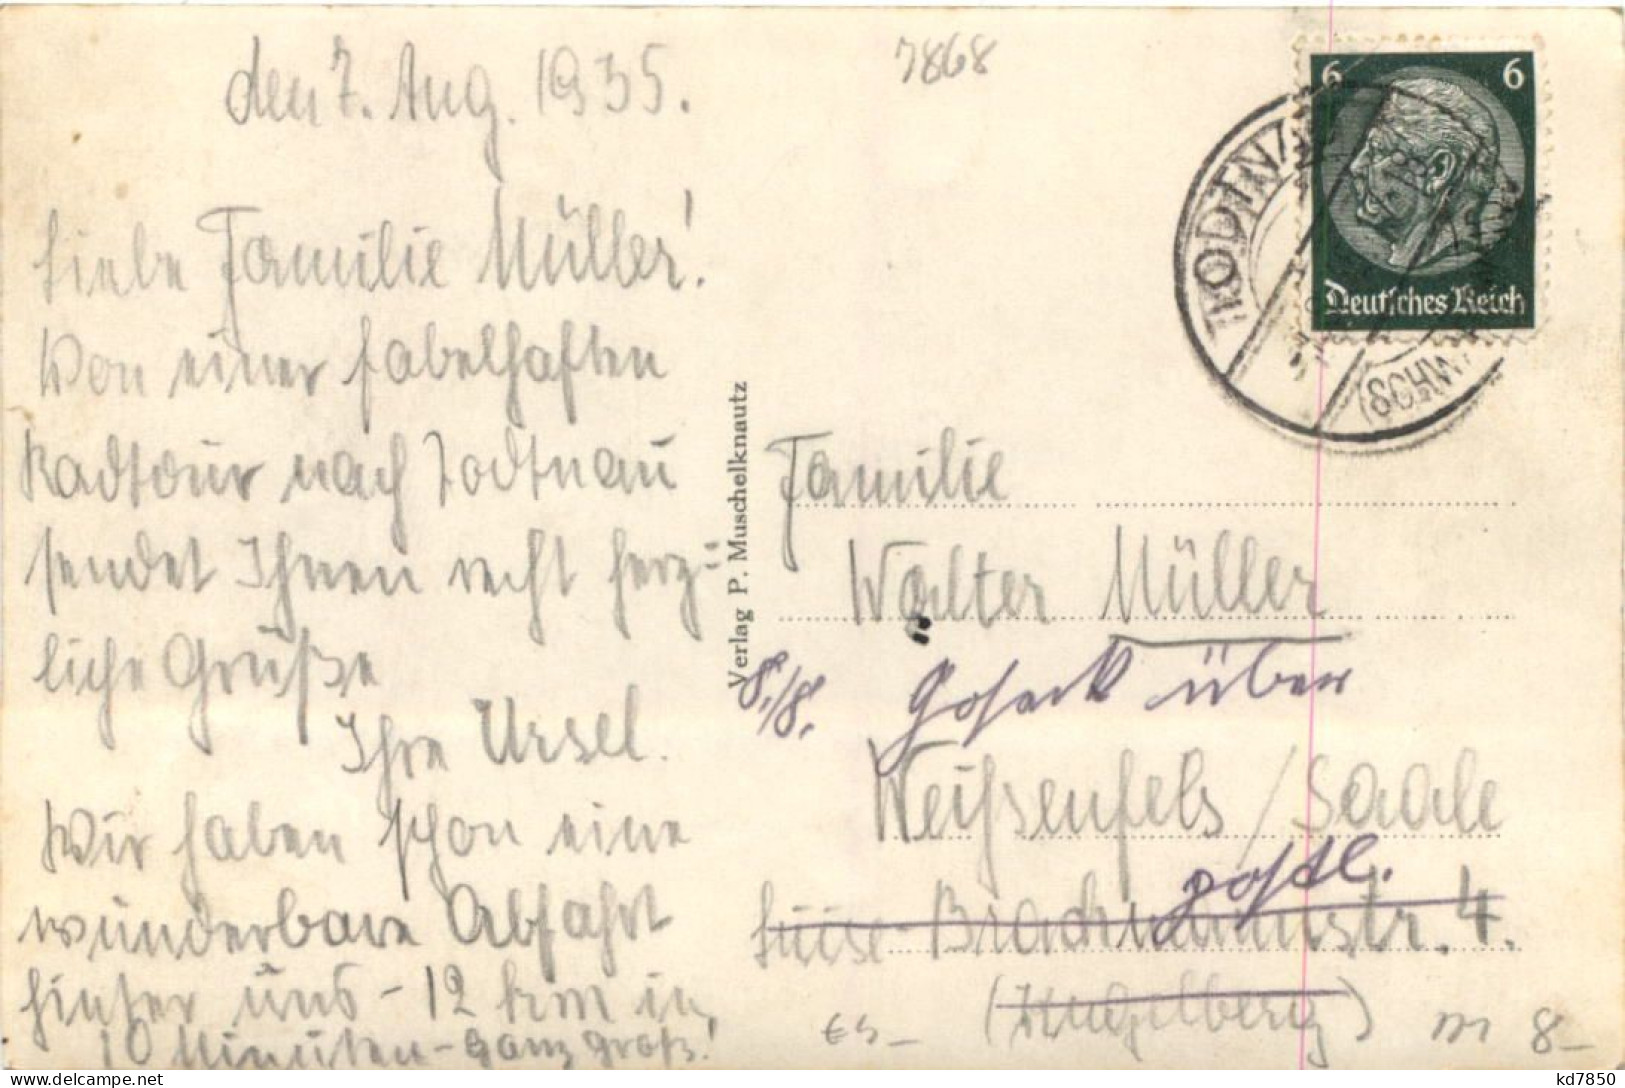 den 7. Aug. 1935.
Liebe Familie Müller!
Von einer fabelhaften
Radtour nach Todtnau
sendet Ihnen recht herz-
liche Grüße
Ihre Ursel.
Wir haben schon eine
wunderbare Abfahrt
hinter uns - 12 km in
10 Minuten - ganz groß!
Verlag P. Muschelknautz
7868
6 6
Deutsches Reich
TODTNA
(SCHW
Familie
Walter Müller
8./8. Goseck über
Weißenfels / Saale
postl.
Luise Brachmannstr. 4.
(Kugelberg)
m 8-
kd7850